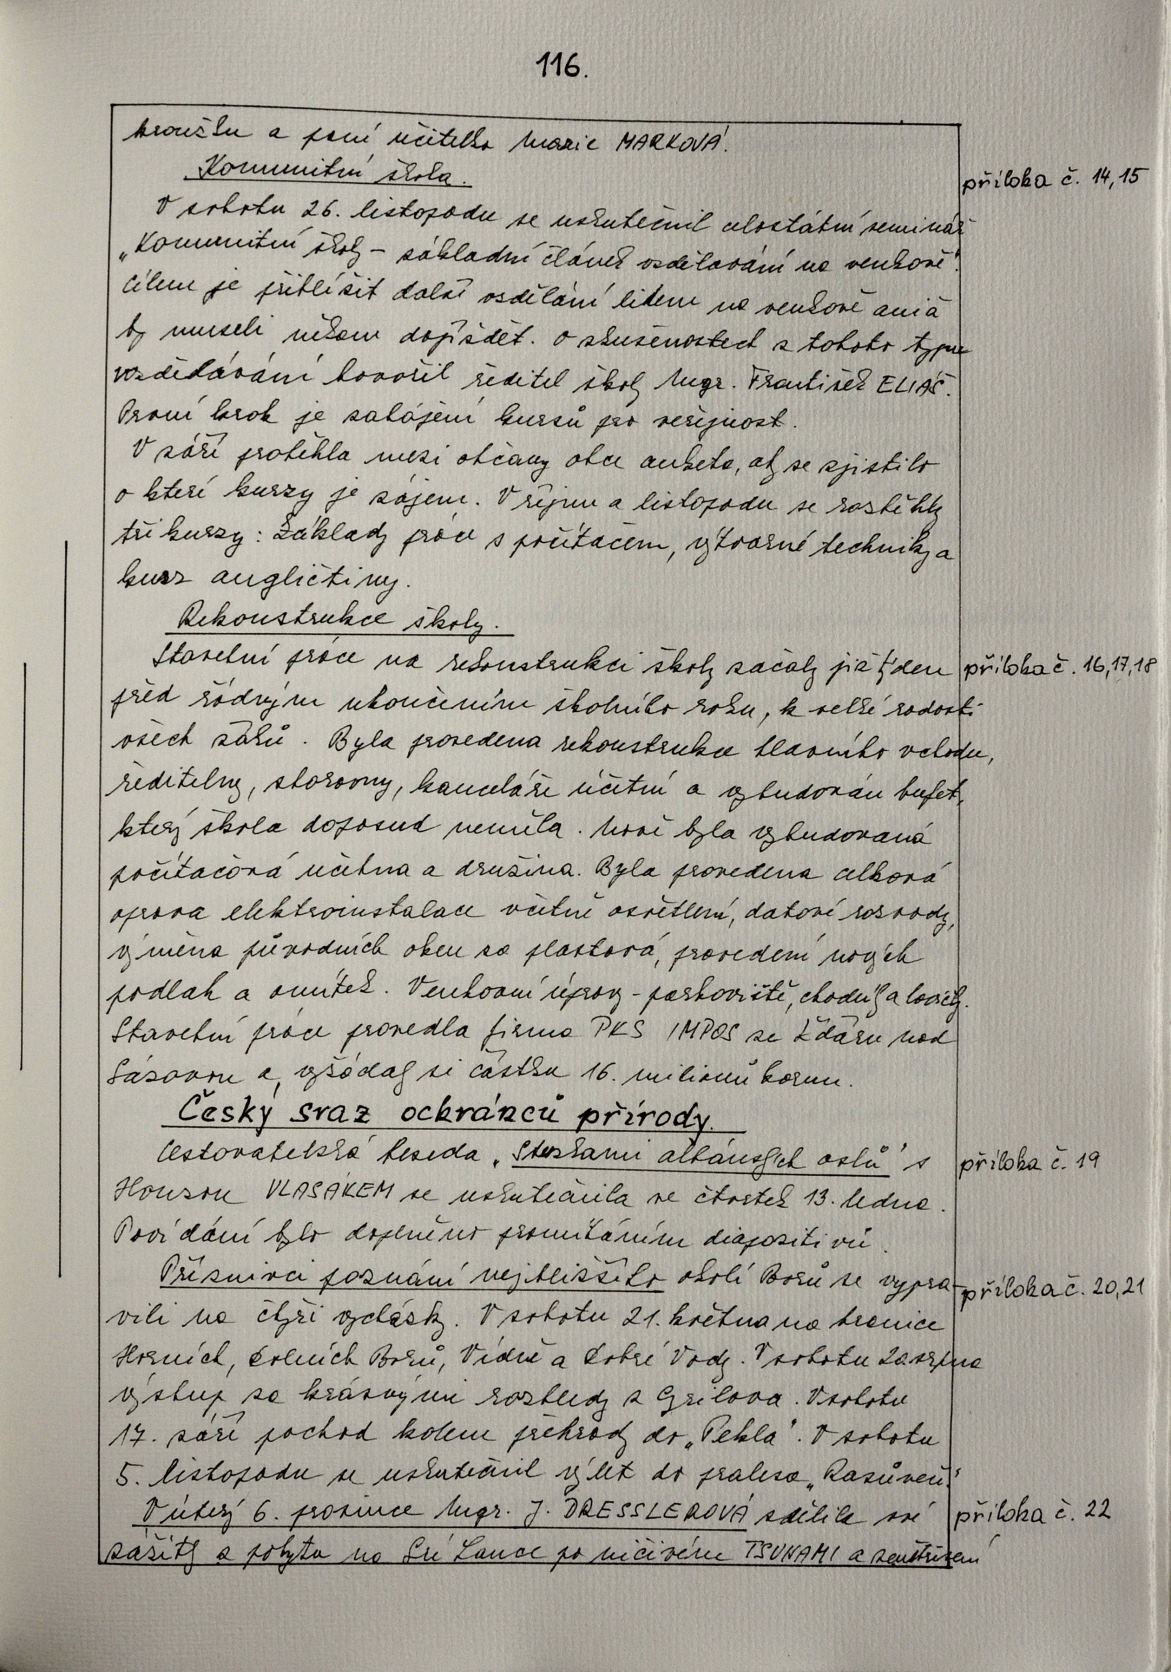 116.
kroužku a paní učitelka Marie MARKOVÁ.
Komunitní škola.
příloha č. 14,15
V sobotu 26. listopadu se uskutečnil celostátní seminář
„Komunitní školy – základní článek vzdělávání na venkově".
Cílem je přiblížit další vzdělání lidem na venkově aniž
by museli někam dojíždět. O zkušenostech z tohoto typu
vzdělávání hovořil ředitel školy Mgr. František ELIÁŠ.
První krok je zahájení kursů pro veřejnost.
V září proběhla mezi občany obce anketa, aby se zjistilo
o které kurzy je zájem. V říjnu a listopadu se rozběhly
tři kurzy: Základy práce s počítačem, výtvarné techniky a
kurz angličtiny.
Rekonstrukce školy.
Stavební práce na rekonstrukci školy začaly již týden
příloha č. 16,17,18
před řádným ukončením školního roku, k velké radosti
všech žáků. Byla provedena rekonstrukce hlavního vchodu,
ředitelny, sborovny, kanceláře účetní a vybudován bufet,
který škola doposud neměla. Nově byla vybudovaná
počítačová učebna a družina. Byla provedena celková
oprava elektroinstalace včetně osvětlení, datové rozvody,
výměna původních oken za plastová, provedení nových
podlah a omítek. Venkovní úpravy – parkoviště, chodníky a lavičky.
Stavební práce provedla firma PKS IMPOS ze Žďáru nad
Sázavou a vyžádaly si částku 16. milionů korun.
Český svaz ochránců přírody.
Cestovatelská beseda „Stezkami albánských oslů" s
příloha č. 19
Honzou VLASÁKEM se uskutečnila ve čtvrtek 13. ledna.
Povídání bylo doplněno promítáním diapozitivů.
Příznivci poznání nejbližšího okolí Borů se vypra-
příloha č. 20,21
vili na čtyři vycházky. V sobotu 21. května na hranice
Horních, Dolních Borů, Vídně a Dobré Vody. V sobotu srpna
výstup za krásnými rozhledy z Grilova. V sobotu
17. září pochod kolem přehrady do „Pekla". V sobotu
5. listopadu se uskutečnil výlet do pralesa „Rasůveň."
V úterý 6. prosince Mgr. J. DRESSLEROVÁ sdělila své
příloha č. 22
zážitky z pobytu na Srí Lance po ničivém TSUNAMI a zemětřesení